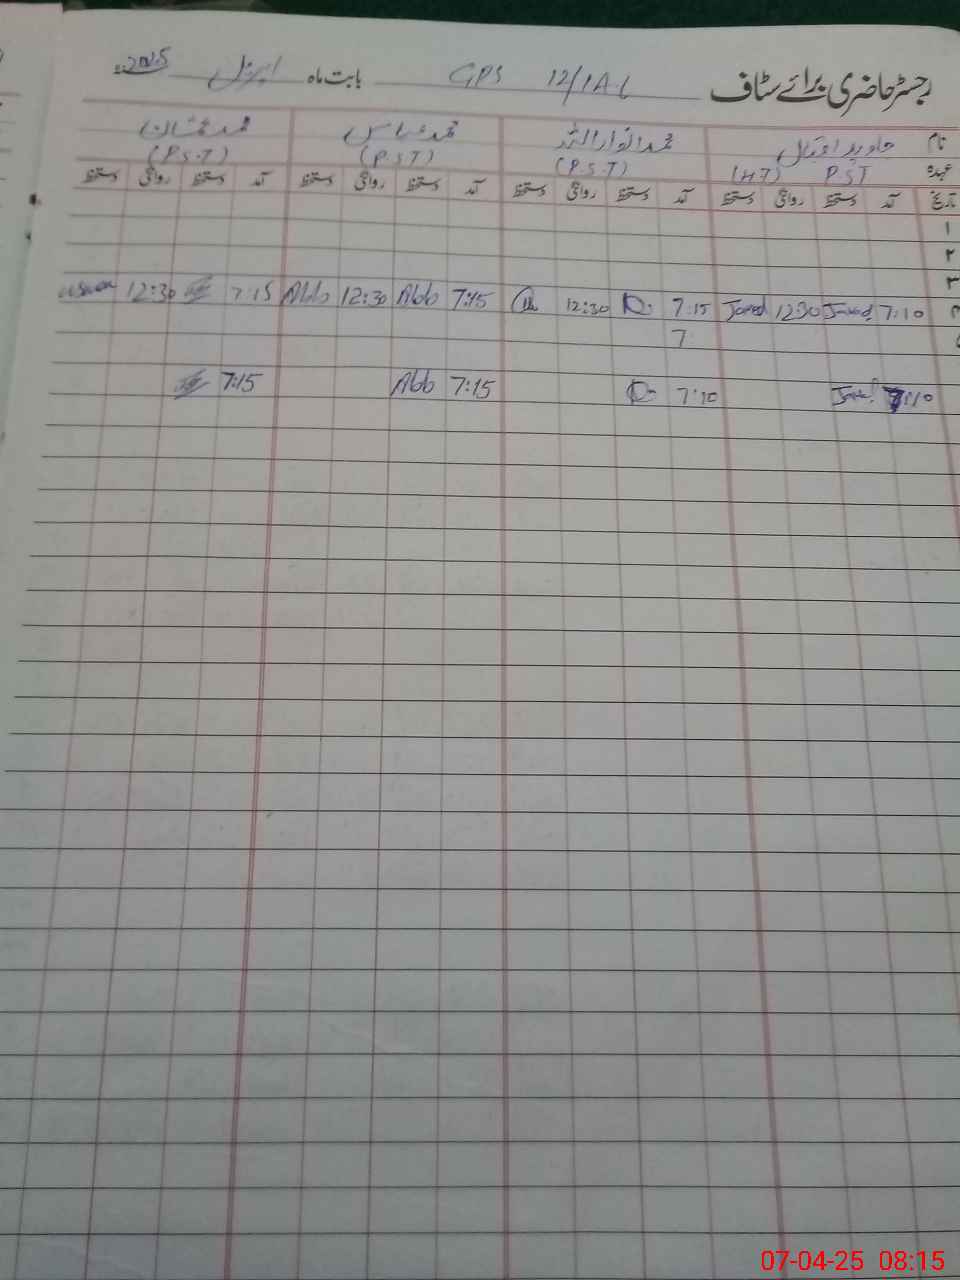 رجسٹر حاضری برائے سٹاف GPS 12/1AL بابت ماہ اپریل 2025ء
نام جاوید اقبال محمد انوار الحق محمد عباس محمد عثمان
عہدہ PST (HT) (P.S.T) (PST) (P.S.T)
تاریخ آمد دستخط روانگی دستخط آمد دستخط روانگی دستخط آمد دستخط روانگی دستخط آمد دستخط روانگی دستخط
۱
۲
۳
۴ 7:10 Javed 12:30 Javed 7:15 12:30 7:15 Abb 12:30 Abb 7:15 12:30 usman
7
7:10 Javed 7:10 7:15 Abb 7:15
07-04-25 08:15